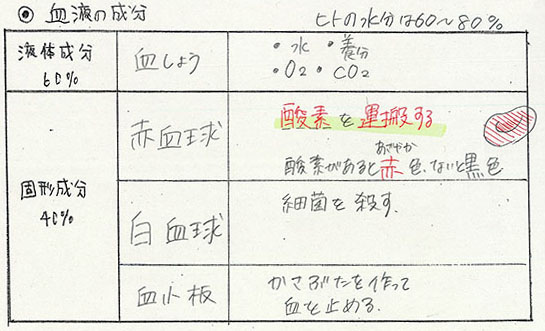 ◎ 血液の成分
ヒトの水分は60〜80%
液体成分
60%
血しょう
・水 ・養分
・O2 ・CO2
固形成分
40%
赤血球
酸素を運搬する
あざやか
酸素があると赤色、ないと黒色
白血球
細菌を殺す.
血小板
かさぶたを作って
血を止める.